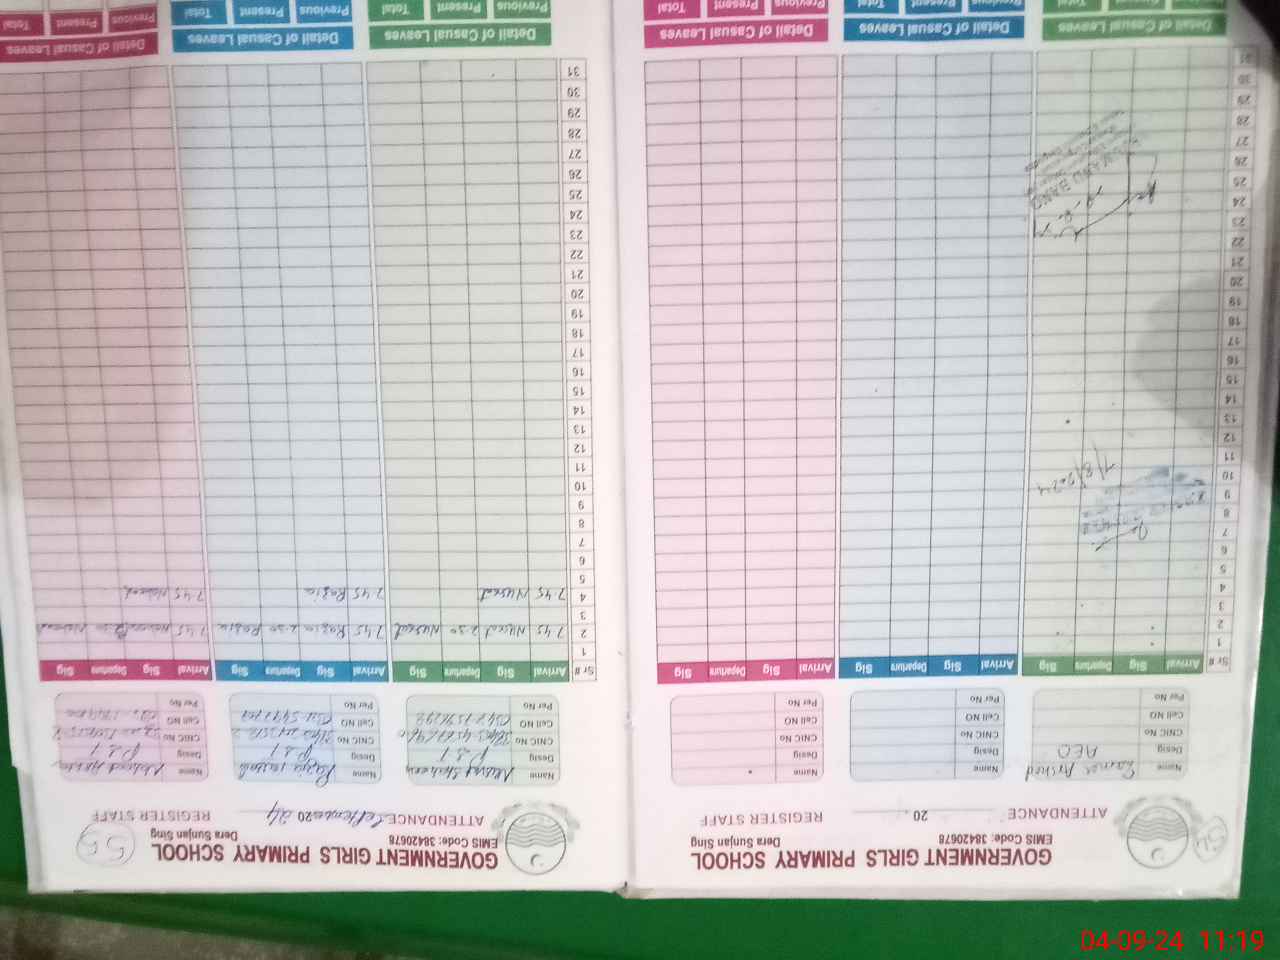 GOVERNMENT GIRLS PRIMARY SCHOOL
EMIS Code: 38420678 Dera Sunjan Sing
54
ATTENDANCE 20 REGISTER STAFF
Name Arshed
Desig AEO
CNIC No
Cell NO
Per No
Name
Desig
CNIC No
Cell NO
Per No
Name
Desig
CNIC No
Cell NO
Per No
Sr# Arrival Sig Departure Sig Arrival Sig Departure Sig Arrival Sig Departure Sig
1
2
3
4
5
6
7
8
9
10
11
12
13
14
15
16
17
18
19
20
21
22
23
24
25
26
27
28
29
30
31
1/8/2024
Detail of Casual Leaves Detail of Casual Leaves Detail of Casual Leaves
Previous Present Total Previous Present Total Previous Present Total
GOVERNMENT GIRLS PRIMARY SCHOOL
EMIS Code: 38420678 Dera Sunjan Sing
55
ATTENDANCE September 2024 REGISTER STAFF
Name Nusrat Shaheen
Desig PST
CNIC No
Cell NO
Per No
Name Razia
Desig PST
CNIC No
Cell NO
Per No
Name
Desig PST
CNIC No
Cell NO
Per No
Sr# Arrival Sig Departure Sig Arrival Sig Departure Sig Arrival Sig Departure Sig
1
2 7.45 Nusrat 2.30 Nusrat 7.45 Razia 2.30 Razia 7.45
3
4 7.45 Nusrat 7.45 Razia 7.45
5
6
7
8
9
10
11
12
13
14
15
16
17
18
19
20
21
22
23
24
25
26
27
28
29
30
31
Detail of Casual Leaves Detail of Casual Leaves Detail of Casual Leaves
Previous Present Total Previous Present Total Previous Present Total
04-09-24 11:19